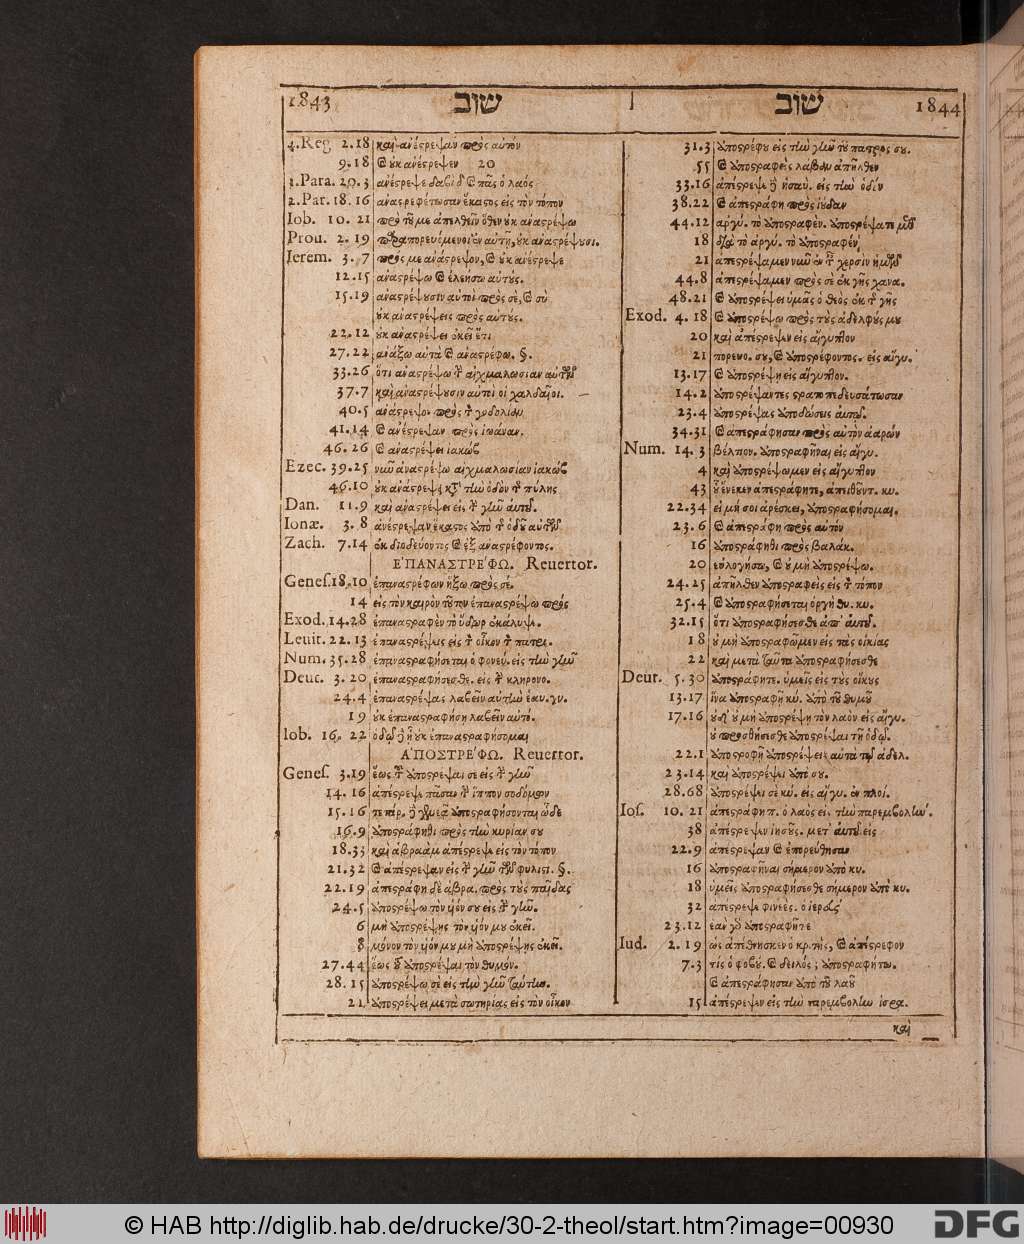 1843 שוב
4.Reg 2.18 καὶ ἀνέστρεψαν πρὸς αὐτόν
9.18 & οὐκ ἀνέστρεψεν 20
1.Para. 20.3 ἀνέστρεψε δαβὶδ & πᾶς ὁ λαός
2.Par. 18.16 ἀναστρεφέτωσαν ἕκαστος εἰς τὸν τόπον
Iob. 10.21 πρὸ τοῦ με ἀπελθεῖν ὅθεν οὐκ ἀναστρέψω
Prou. 2.19 πορευόμενοι ἐν αὐτῇ, οὐκ ἀναστρέψουσι.
Ierem. 3.7 πρός με ἀνάστρεψον, & οὐκ ἀνέστρεψε
12.15 ἀναστρέψω & ἐλεήσω αὐτούς.
15.19 ἀναστρέψουσιν αὐτοὶ πρὸς σὲ, & σὺ
οὐκ ἀναστρέψεις πρὸς αὐτούς.
22.12 οὐκ ἀναστρέψει ἐκεῖ ἔτι
27.22 ἀνάξω αὐτὰ & ἀναστρέφω. §.
33.26 ὅτι ἀναστρέψω τὴν αἰχμαλωσίαν αὐτῶν
37.7 καὶ ἀναστρέψουσιν αὐτοὶ οἱ χαλδαῖοι.
40.5 ἀνάστρεψον πρὸς τὸν γοδολίαν
41.14 & ἀνέστρεψαν πρὸς ἰωάναν.
46.26 & ἀναστρέψει ἰακώβ
Ezec. 39.25 νῦν ἀναστρέψω αἰχμαλωσίαν ἰακώβ
46.10 οὐκ ἀναστρέψει κατὰ τὴν ὁδὸν τῆς πύλης
Dan. 11.9 καὶ ἀναστρέψει εἰς τὴν γῆν αὐτοῦ.
Ionæ. 3.8 ἀνέστρεψαν ἕκαστος ἀπὸ τῆς ὁδοῦ αὐτῶν
Zach. 7.14 ἐκ διοδεύοντος & ἐξ ἀναστρέφοντος.
ΕΠΑΝΑΣΤΡΕΦΩ. Reuertor.
Genes. 18.10 ἐπαναστρέφων ἥξω πρός σέ.
14 εἰς τὸν καιρὸν τοῦτον ἐπαναστρέψω πρός
Exod. 14.28 ἐπαναστραφὲν τὸ ὕδωρ ἐκάλυψε.
Leuit. 22.13 ἐπαναστρέψει εἰς τὸν οἶκον τὸν πατρι.
Num. 35.28 ἐπαναστραφήσεται ὁ φονεύ. εἰς τὴν γῆν
Deut. 3.20 ἐπαναστραφήσεσθε. εἰς τὴν κληρονο.
24.4 ἐπαναστρέψας λαβεῖν αὐτὴν ἑαυ. γυ.
19 οὐκ ἐπαναστραφήσῃ λαβεῖν αὐτό.
Iob. 16.22 ὁδῷ δὲ ᾗ οὐκ ἐπαναστραφήσομαι
ΑΠΟΣΤΡΕΦΩ. Reuertor.
Genes. 3.19 ἕως τοῦ ἀποστρέψαι σε εἰς τὴν γῆν
14.16 ἀπέστρεψε πᾶσαν τὴν ἵππον σοδόμων
15.16 τετάρ. δὲ γενεᾷ ἀποστραφήσονται ὧδε
16.9 ἀποστράφηθι πρὸς τὴν κυρίαν σου
18.33 καὶ ἀβραὰμ ἀπέστρεψε εἰς τὸν τόπον
21.32 & ἀπέστρεψαν εἰς τὴν γῆν τῶν φυλιστ. §.
22.19 ἀπεστράφη δὲ ἀβρα. πρὸς τοὺς παῖδας
24.5 ἀποστρέψω τὸν υἱόν σου εἰς τὴν γῆν.
6 μὴ ἀποστρέψῃς τὸν υἱόν μου ἐκεῖ.
8 μόνον τὸν υἱόν μου μὴ ἀποστρέψῃς ἐκεῖ.
27.44 ἕως τοῦ ἀποστρέψαι τὸν θυμόν.
28.15 ἀποστρέψω σε εἰς τὴν γῆν ταύτην.
21 ἀποστρέψει μετὰ σωτηρίας εἰς τὸν οἶκον
שוב 1844
31.3 ἀποστρέφου εἰς τὴν γῆν τοῦ πατρός σου.
55 & ἀποστραφεὶς λαβὰν ἀπῆλθεν
33.16 ἀπέστρεψε δὲ ἠσαῦ. εἰς τὴν ὁδόν
38.22 & ἀπεστράφη πρὸς ἰούδαν
44.12 ἀργύ. τὸ ἀποστραφέν. ἀποστρέψατε μεθ
18 διὰ τὸ ἀργύ. τὸ ἀποστραφέν
21 ἀπεστρέψαμεν νῦν ἐν ταῖς χερσὶν ἡμῶν
44.8 ἀπεστρέψαμεν πρὸς σὲ ἐκ γῆς χανα.
48.21 & ἀποστρέψει ὑμᾶς ὁ θεὸς ἐκ τῆς γῆς
Exod. 4.18 & ἀποστρέψω πρὸς τοὺς ἀδελφούς μου
20 καὶ ἀπέστρεψεν εἰς αἴγυπτον
21 πορευο. σου, & ἀποστρέφοντος. εἰς αἴγυ.
13.17 & ἀποστρέψῃ εἰς αἴγυπτον.
14.2 ἀποστρέψαντες στρατοπεδευσάτωσαν
23.4 ἀποστρέψας ἀποδώσεις αὐτῷ.
34.31 & ἀπεστράφησαν πρὸς αὐτὸν ἀαρών
Num. 14.3 βέλτιον. ἀποστραφῆναι εἰς αἴγυ.
4 καὶ ἀποστρέψωμεν εἰς αἴγυπτον
43 οὗ ἕνεκεν ἀπεστράφητε, ἀπειθοῦντ. κυ.
22.34 εἰ μή σοι ἀρέσκει, ἀποστραφήσομαι.
23.6 & ἀπεστράφη πρὸς αὐτόν
16 ἀποστράφηθι πρὸς βαλάκ.
20 εὐλογήσω, & οὐ μὴ ἀποστρέψω.
24.25 ἀπῆλθεν ἀποστραφεὶς εἰς τὸν τόπον
25.4 & ἀποστραφήσεται ὀργὴ θυ. κυ.
32.15 ὅτι ἀποστραφήσεσθε ἀπ' αὐτοῦ.
18 οὐ μὴ ἀποστραφῶμεν εἰς τὰς οἰκίας
22 καὶ μετὰ ταῦτα ἀποστραφήσεσθε
Deut. 5.30 ἀποστράφητε. ὑμεῖς εἰς τοὺς οἴκους
13.17 ἵνα ἀποστραφῇ κύ. ἀπὸ τοῦ θυμοῦ
17.16 οὐδ' οὐ μὴ ἀποστρέψῃ τὸν λαὸν εἰς αἴγυ.
οὐ προσθήσεσθε ἀποστρέψαι τῇ ὁδῷ.
22.1 ἀποστροφῇ ἀποστρέψεις αὐτὰ τῷ ἀδελ.
23.14 καὶ ἀποστρέψει ἀπὸ σου.
28.68 ἀποστρέψει σε κύ. εἰς αἴγυ. ἐν πλοί.
Ios. 10.21 ἀπεστράφη π. ὁ λαὸς εἰς τὴν παρεμβολήν.
38 ἀπέστρεψεν ἰησοῦς. μετ' αὐτοῦ εἰς
22.9 ἀπέστρεψαν & ἐπορεύθησαν
16 ἀποστραφῆναι σήμερον ἀπὸ κυ.
18 ὑμεῖς ἀποστραφήσεσθε σήμερον ἀπὸ κυ.
32 ἀπέστρεψε φινεές. ὁ ἱερεύς
23.12 ἐὰν γὰρ ἀποστραφῆτε
Iud. 2.19 ὡς ἀπέθνησκεν ὁ κριτής, & ἀπέστρεφον
7.3 τίς ὁ φοβού. & δειλός; ἀποστραφήτω.
& ἀπεστράφησαν ἀπὸ τοῦ λαοῦ
15 ἀπέστρεψεν εἰς τὴν παρεμβολὴν ἰσρα.
καὶ
© HAB http://diglib.hab.de/drucke/30-2-theol/start.htm?image=00930 DFG